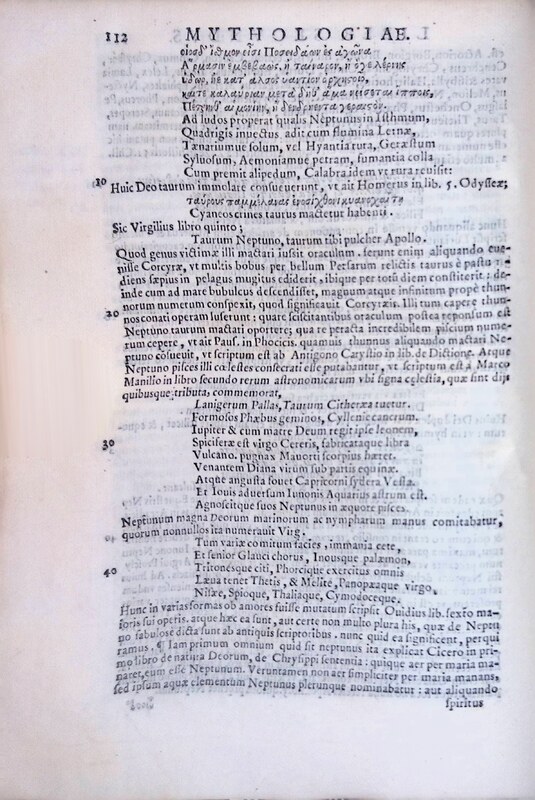 112 MYTHOLOGIAE.
Ad ludos properat qualis Neptunus in Isthmum,
Quadrigis inuectus adit cum flumina Lernæ,
Tænariumue solum, vel Hyantia rura, Geræstum
Syluosum, Aemoniamue petram, fumantia colla
Cum premit alipedum, Calabra idem vt rura reuisit:
10 Huic Deo taurum immolare consueuerunt, vt ait Homerus in lib. 5. Odysseæ;
Cyaneos crines taurus mactetur habenti.
Sic Virgilius libro quinto;
Taurum Neptuno, taurum tibi pulcher Apollo.
Quod genus victimæ illi mactari iussit oraculum. ferunt enim aliquando eue-
nisse Corcyræ, vt multis bobus per bellum Persarum relictis taurus è pastu re-
diens sæpius in pelagus mugitus ediderit, ibique per totū diem constiterit: de-
inde cum ad mare bubulcus descendisset, magnum atque infinitum propè thun-
norum numerum conspexit, quod significauit Corcyræis. Illi tum capere thun-
20 nos conati operam luserunt: quare sciscitantibus oraculum postea reponsum est
Neptuno taurum mactari oportere; qua re peracta incredibilem piscium nume-
rum cepere, vt ait Paus. in Phocicis. quamuis thunnus aliquando mactari Ne-
ptuno cōsueuit, vt scriptum est ab Antigono Carystio in lib. de Dictione. Atque
Neptuno pisces illi cœlestes consecrati esse putabantur, vt scriptum est à Marco
Manilio in libro secundo rerum astronomicarum vbi signa celestia, quæ sint dijs
quibusque tributa; commemorat,
Lanigerum Pallas, Taurum Citheræa tuetur.
Formosos Phœbus geminos, Cyllenie cancrum.
Iupiter & cum matre Deum regit ipse leonem,
30 Spicifera est virgo Cereris, fabricataque libra
Vulcano. pugnax Mauorti scorpius hæret.
Venantem Diana virum sub partis equinæ.
Atque angusta fouet Capricorni sydera Vesta.
Et Iouis aduersum Iunonis Aquarius astrum est.
Agnoscitque suos Neptunus in æquore pisces.
Neptunum magna Deorum marinorum ac nympharum manus comitabatur,
quorum nonnullos ita numerauit Virg.
Tum variæ comitum facies, immania cete,
Et senior Glauci chorus, Inousque palæmon,
40 Tritonesque citi, Phorcique exercitus omnis
Læua tenet Thetis, & Melite, Panopæaque virgo,
Nisæe, Spioque, Thaliaque, Cymodoceque.
Hunc in varias formas ob amores fuisse mutatum scripsit Ouidius lib. sexto ma-
ioris sui operis. atque hæc ea sunt, aut certe non multo plura his, quæ de Neptu
no fabulose dicta sunt ab antiquis scriptoribus. nunc quid ea significent, perqui
ramus. ¶ Iam primum omnium quid sit neptunus ita explicat Cicero in pri-
mo libro de natura Deorum, de Chrysippi sententia: quique aer per maria ma-
naret, eum esse Neptunum. Veruntamen non aer simpliciter per maria manans,
sed ipsum aquæ elementum Neptunus plerunque nominabatur: aut aliquando
spiritus